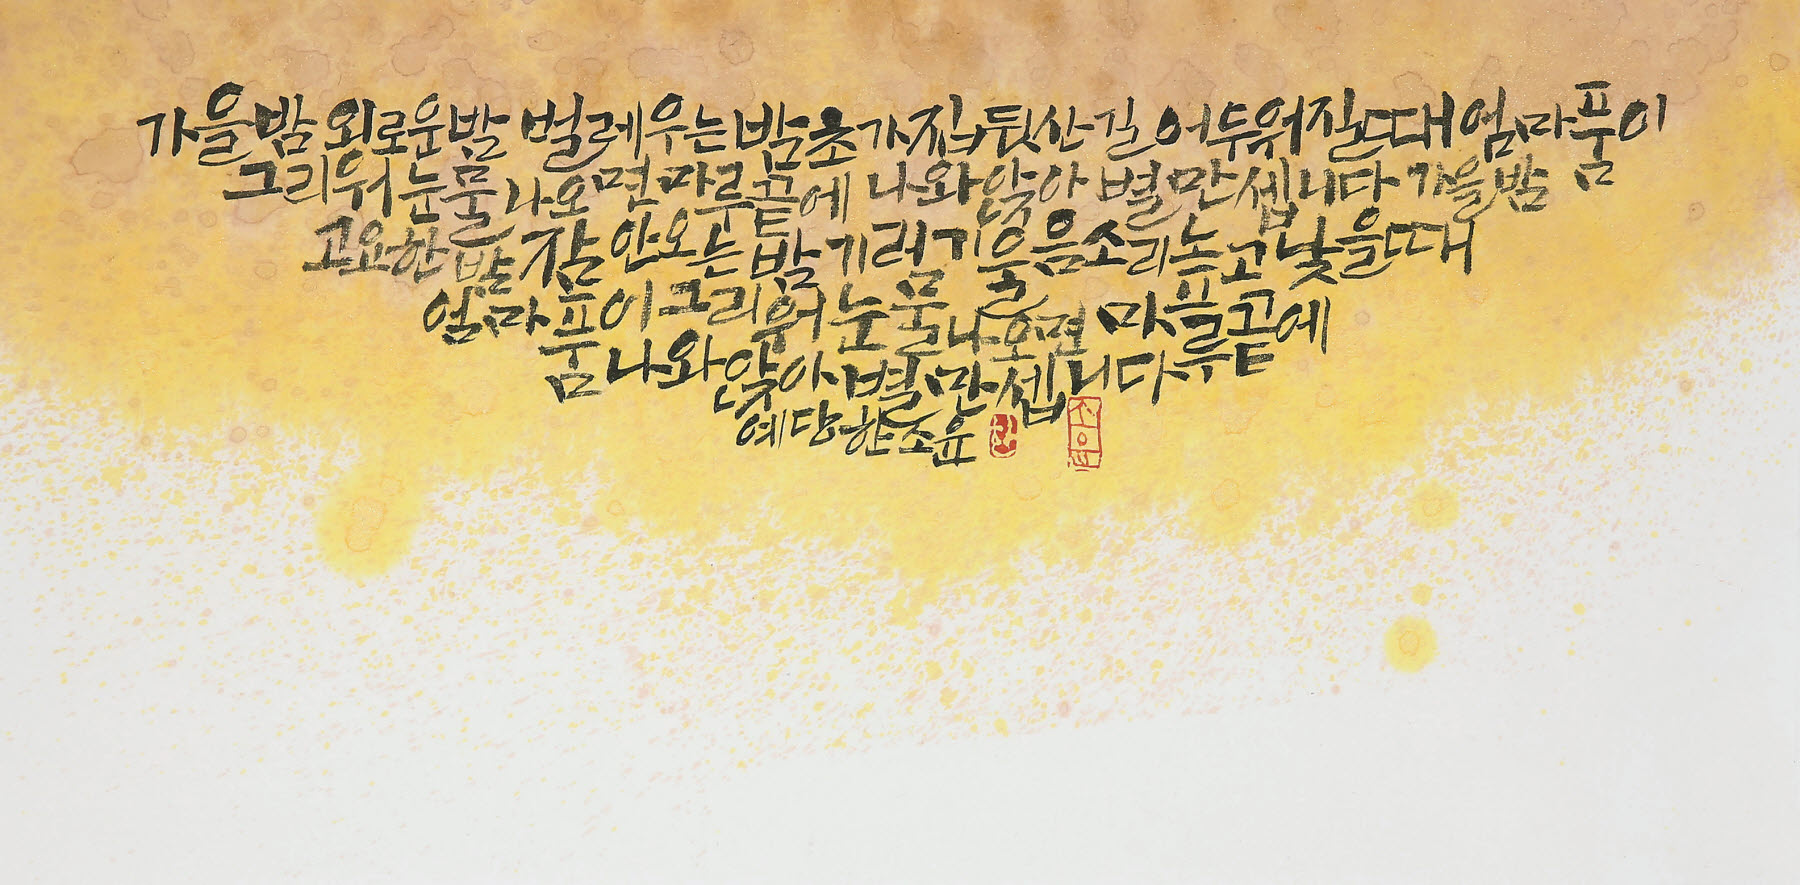 가을밤 외로운밤 벌레우는밤 초가집 뒷산길 어두워질때 엄마품이
그리워 눈물나오면 마루끝에 나와앉아 별만셉니다 가을밤
고요한밤 잠안오는밤 기러기울음소리 높고낮을때
엄마품이 그리워 눈물나오면 마루끝에
나와앉아 별만셉니다
예당 한조윤